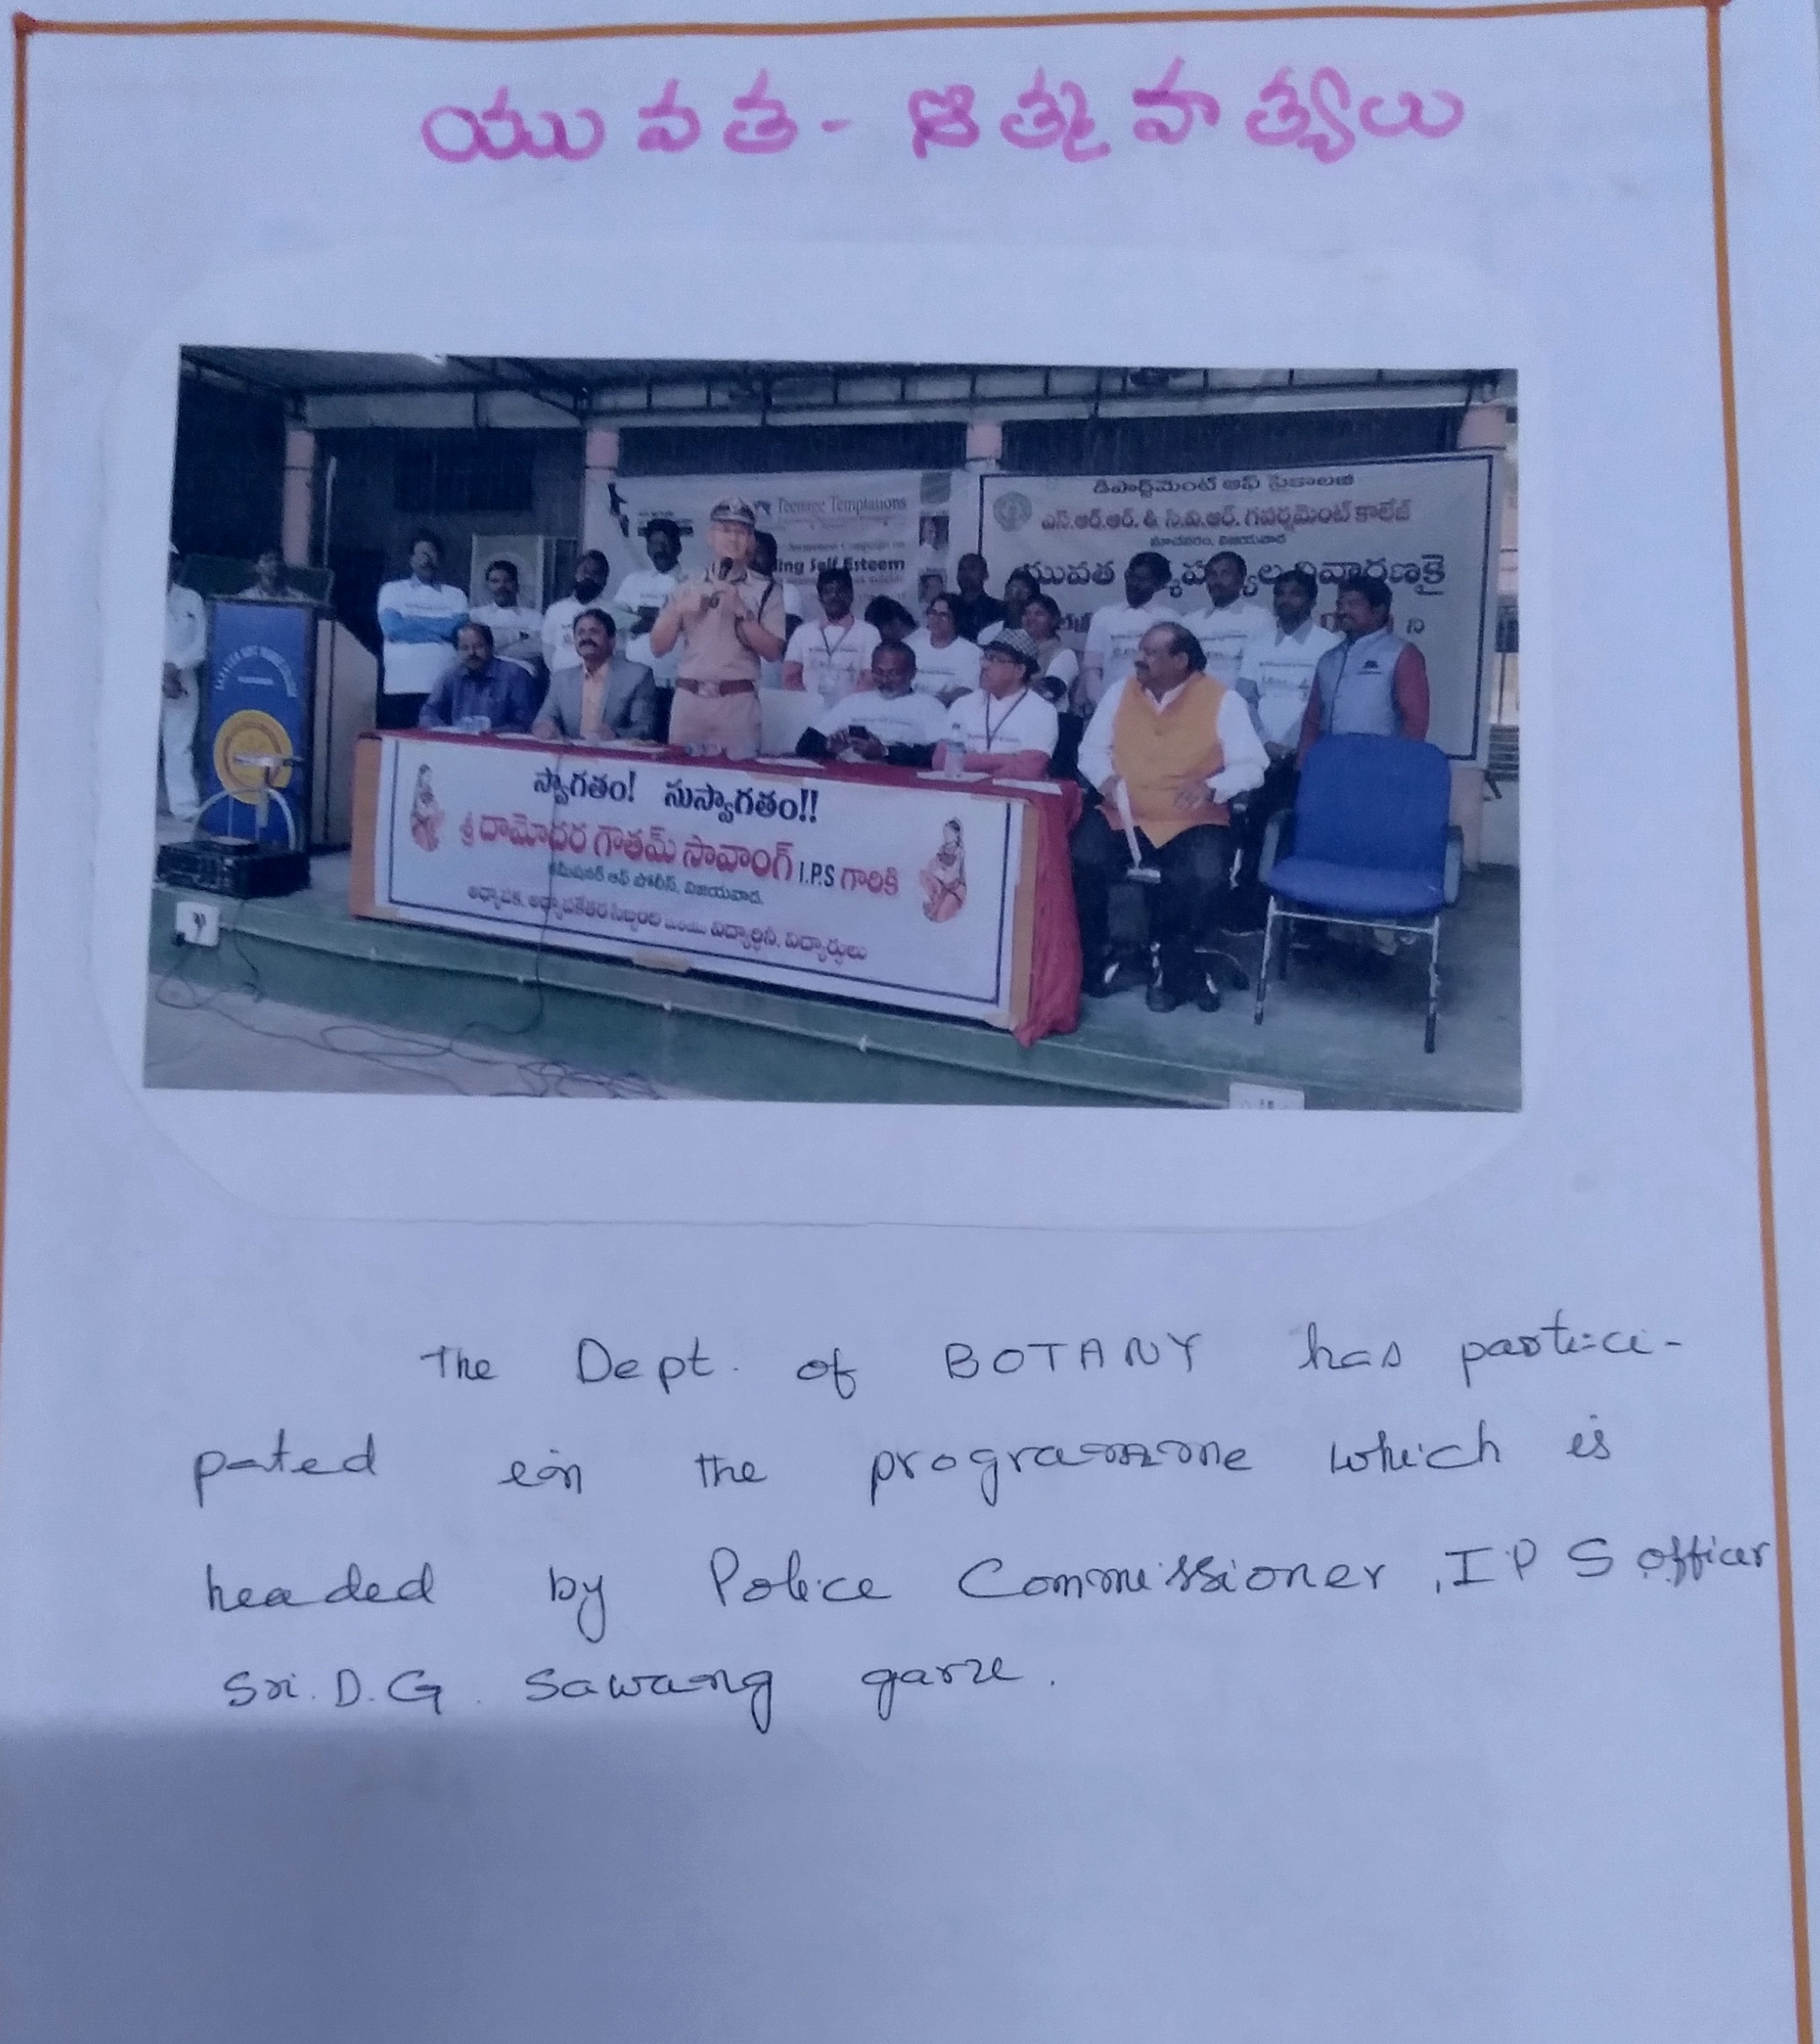 యువత - ఆత్మహత్యలు
Teenage Temptations
Awareness Campaign on
ing Self Esteem
డిపార్ట్‌మెంట్ ఆఫ్ సైకాలజి
ఎస్.ఆర్.ఆర్. & సి.వి.ఆర్. గవర్నమెంట్ కాలేజ్
మాచవరం, విజయవాడ
యువత నివారణకై
ని
స్వాగతం! సుస్వాగతం!!
శ్రీ దామోదర గౌతమ్ సావాంగ్ I.P.S గారికి
కమీషనర్ ఆఫ్ పోలీస్, విజయవాడ.
అధ్యాపక, అధ్యాపకేతర సిబ్బంది మరియు విద్యార్థినీ, విద్యార్థులు
The Dept. of BOTANY has partici-
pated in the programme which is
headed by Police Commissioner, IPS officer
Sri. D.G. Sawang garu.